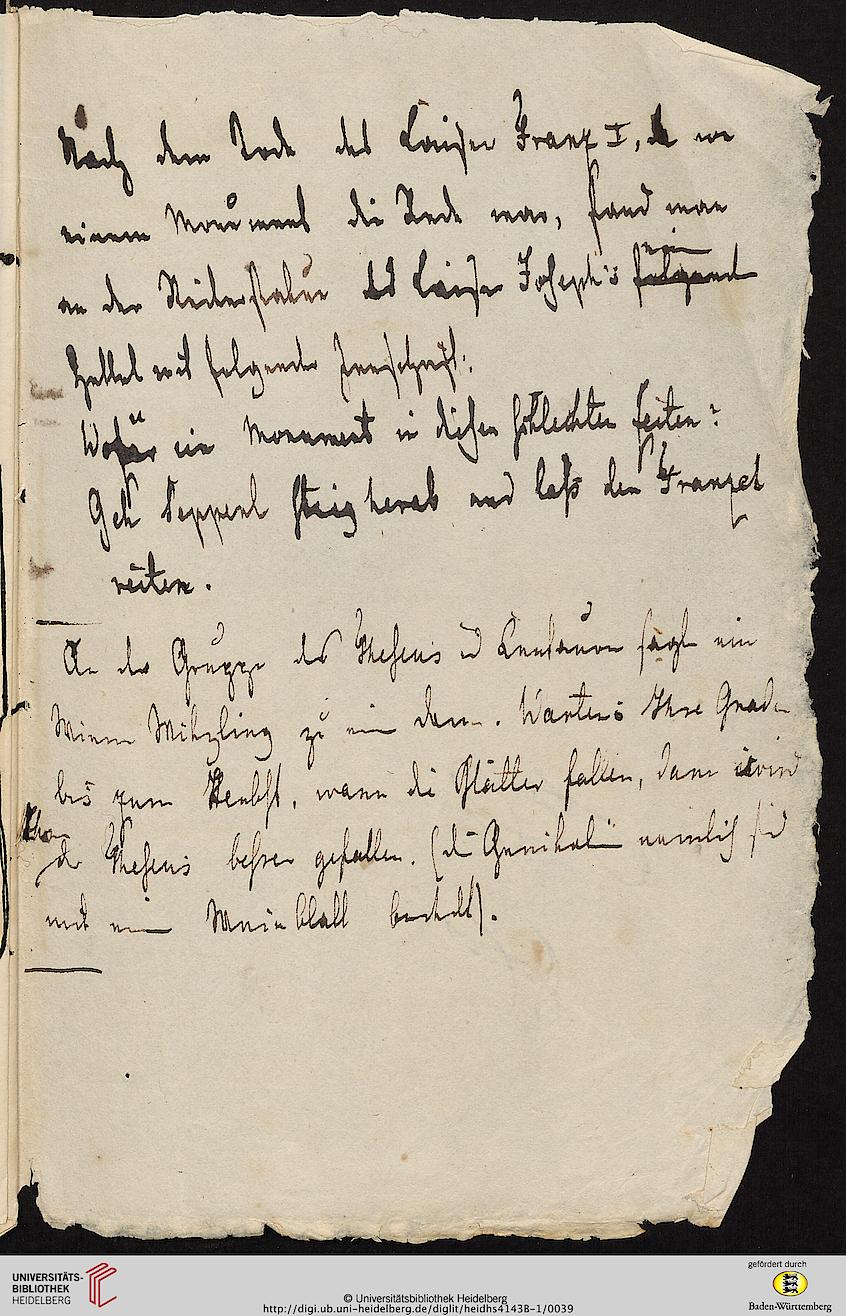 Nach dem Tode des Kaiser Franz I, da von
einem Monument die Rede war, fand man
an der Reiterstatue des Kaiser Joseph's folgend
ein
Zettel mit folgender Innschrift:
Wofür ein Monument in diesen schlechten Zeiten?
Geh Sepperl steig herab und laß den Franzel
reiten.
An der Gruppe des Theseus u Centauren sagte ein
Wiener Witzling zu ein Dame. Warten's Ihre Gnaden
bis zum Herbst, wann die Blätter fallen, dann wird
Ihnen
der Theseus besser gefallen. (die Genitalien nämlich sind
mit ein Weinblatt bedekt).
UNIVERSITÄTS-
BIBLIOTHEK
HEIDELBERG
© Universitätsbibliothek Heidelberg
http://digi.ub.uni-heidelberg.de/diglit/heidhs4143B-1/0039
gefördert durch
Baden-Württemberg